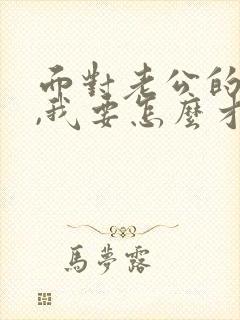 而對老公的
,我要怎麼才
馬夢露